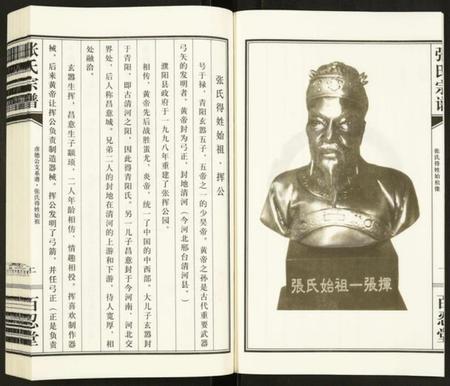 張氏宗譜
張氏得姓始祖像
百忍堂
張氏始祖一張揮
张氏得姓始祖·挥公
号于禄,青阳玄嚣五子,五帝之一的少昊帝。黄帝之孙是古代重要武器
弓矢的发明者。黄帝封为弓正,封地清河(今河北邢台清河县。)
濮阳县政府于一九九八年重建了张挥公园。
相传,黄帝先后战胜蚩尤、炎帝,统一了中国的中西部。大儿子玄嚣封
于青阳,即古清河之阳,因此得青阳氏。另一儿子昌意封于今河南、河北交
界处,后人称昌意城。兄弟二人的封地在清河的上游和下游,待人宽厚,相
处融洽。
玄嚣生挥,昌意生子颛顼,二人年龄相仿,情趣相投。挥喜欢制作器
械,后来黄帝让挥公负责制造器械。挥公发明了弓箭,并任弓正(正是负责
张氏宗譜
彦德公支系谱·张氏得姓始祖
百忍堂